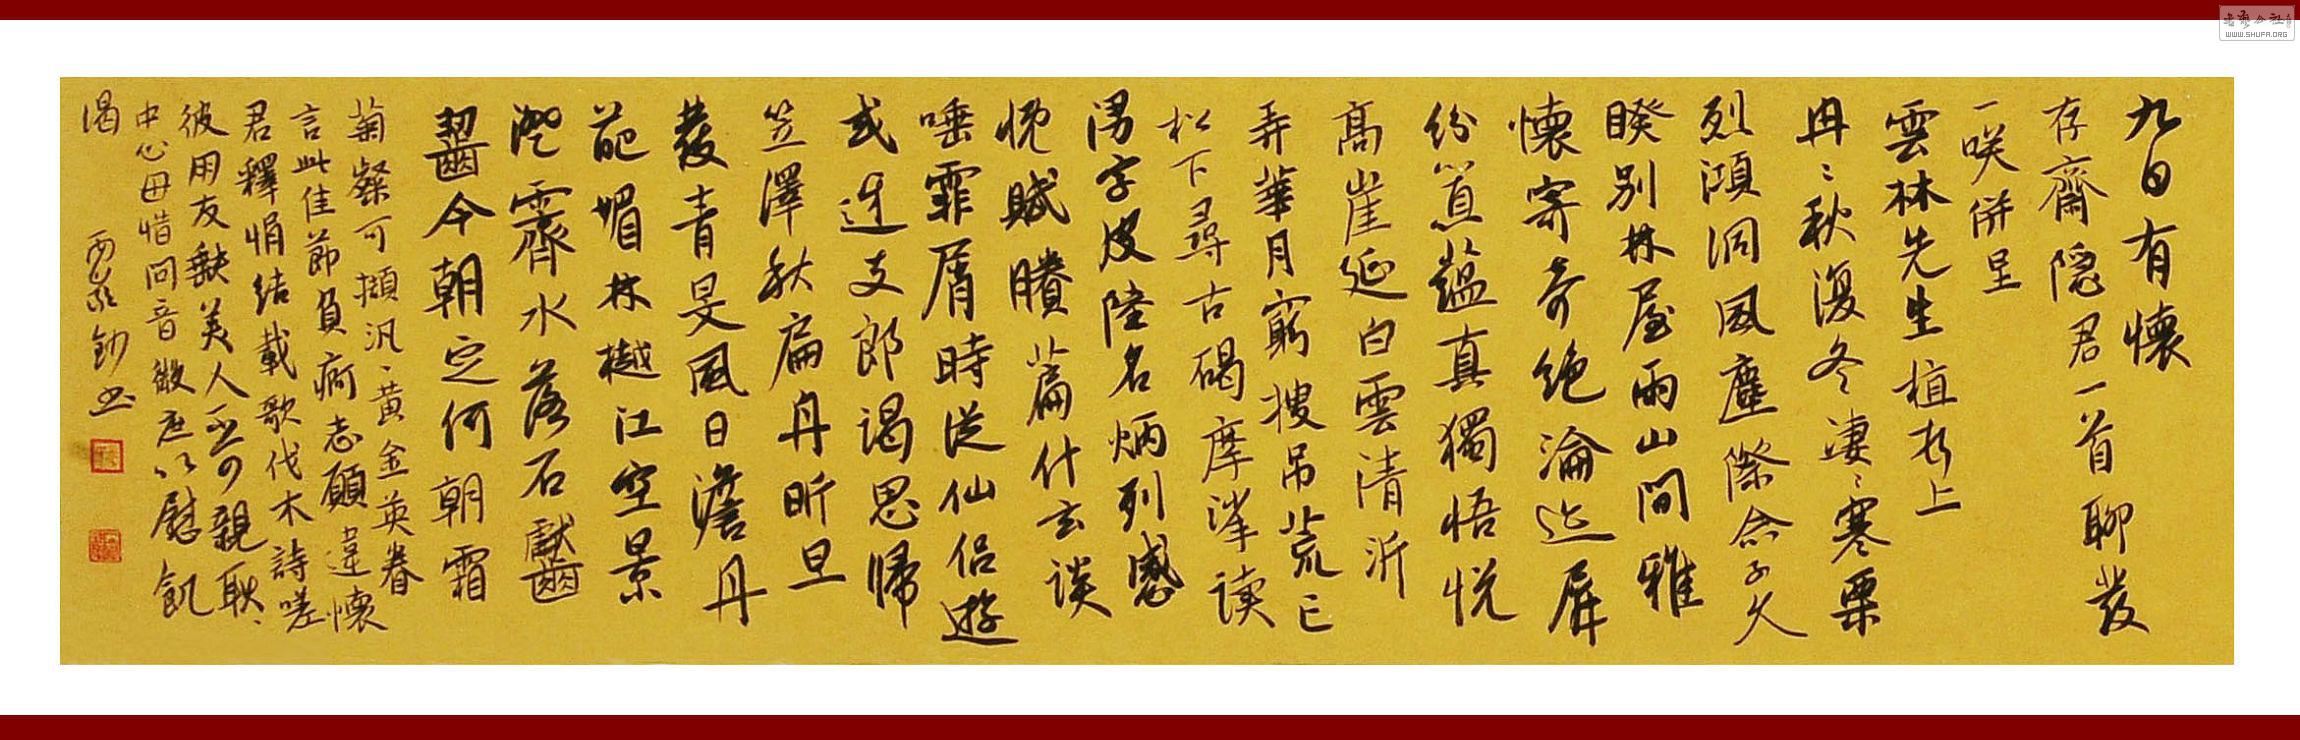 九日有懷
存齋隱君一首聊發
一咲併呈
雲林先生植拜上
冉〻秋復冬淒〻寒栗
烈澒洞風塵際念子久
睽別林屋雨山間雅
懷寄奇絕淪迹屏
紛喧蘊真獨悟悅
高崖延白雲清沂
弄華月窮搜吊荒亡
松下尋古碣摩挲讀
漫字皮陸名炳列感
悅賦賡篇什玄談
唾霏屑時從仙侶遊
或近支郎謁思歸
笠澤秋扁舟昕旦
發青旻風日澹丹
葩媚林樾江空景
澄霽水落石獻齒
齧今朝定何朝霜
菊粲可擷汎〻黃金英眷
言此佳節負痾志願違懷
君釋悁結載歌伐木詩嗟
彼用友缺美人不可親耿〻
中心毋惜問音徽庶以慰飢
渴
鈔书
WWW.SHUFA.ORG